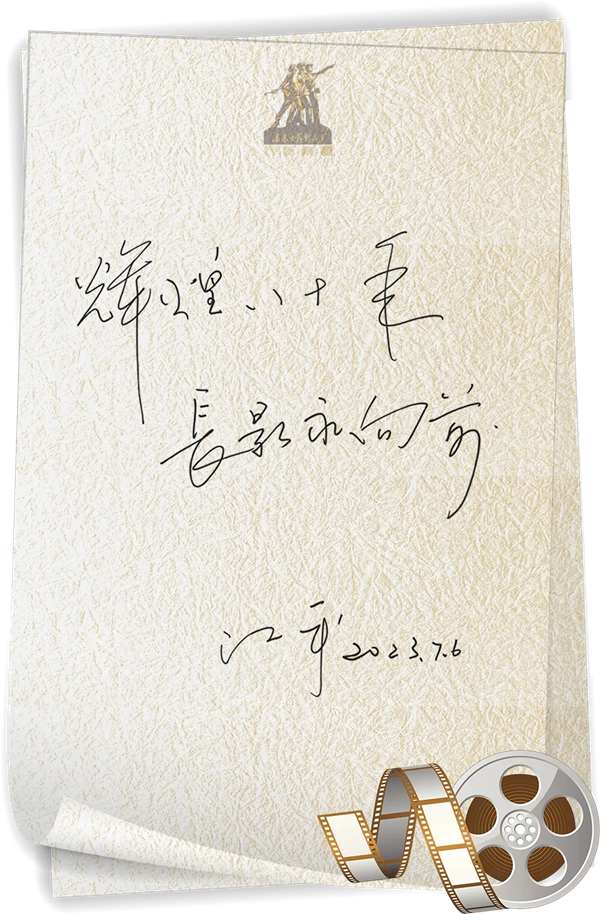 辉煌八十年
長影永向前
江平 2023.7.6